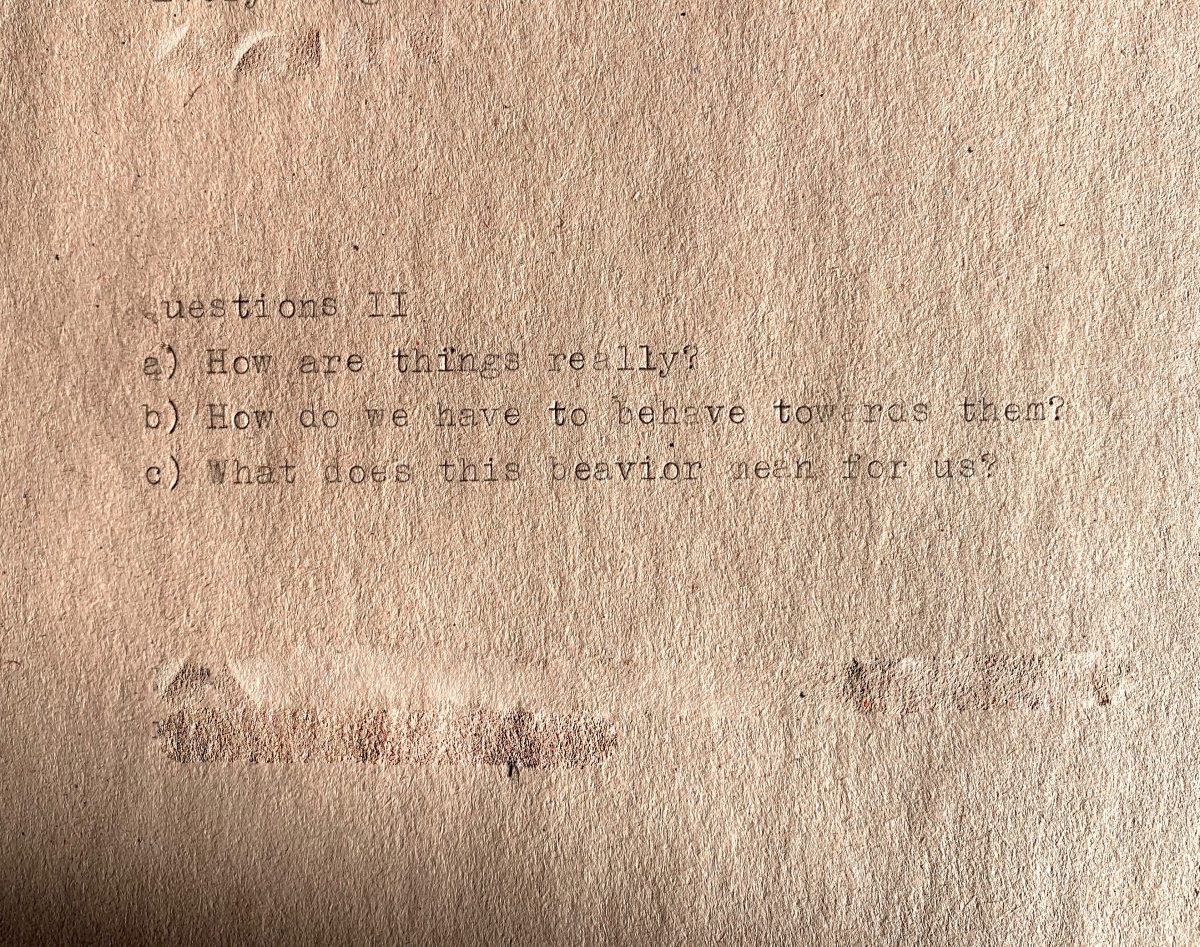 Questions II
a) How are things really?
b) How do we have to behave towards them?
c) What does this beavior mean for us?